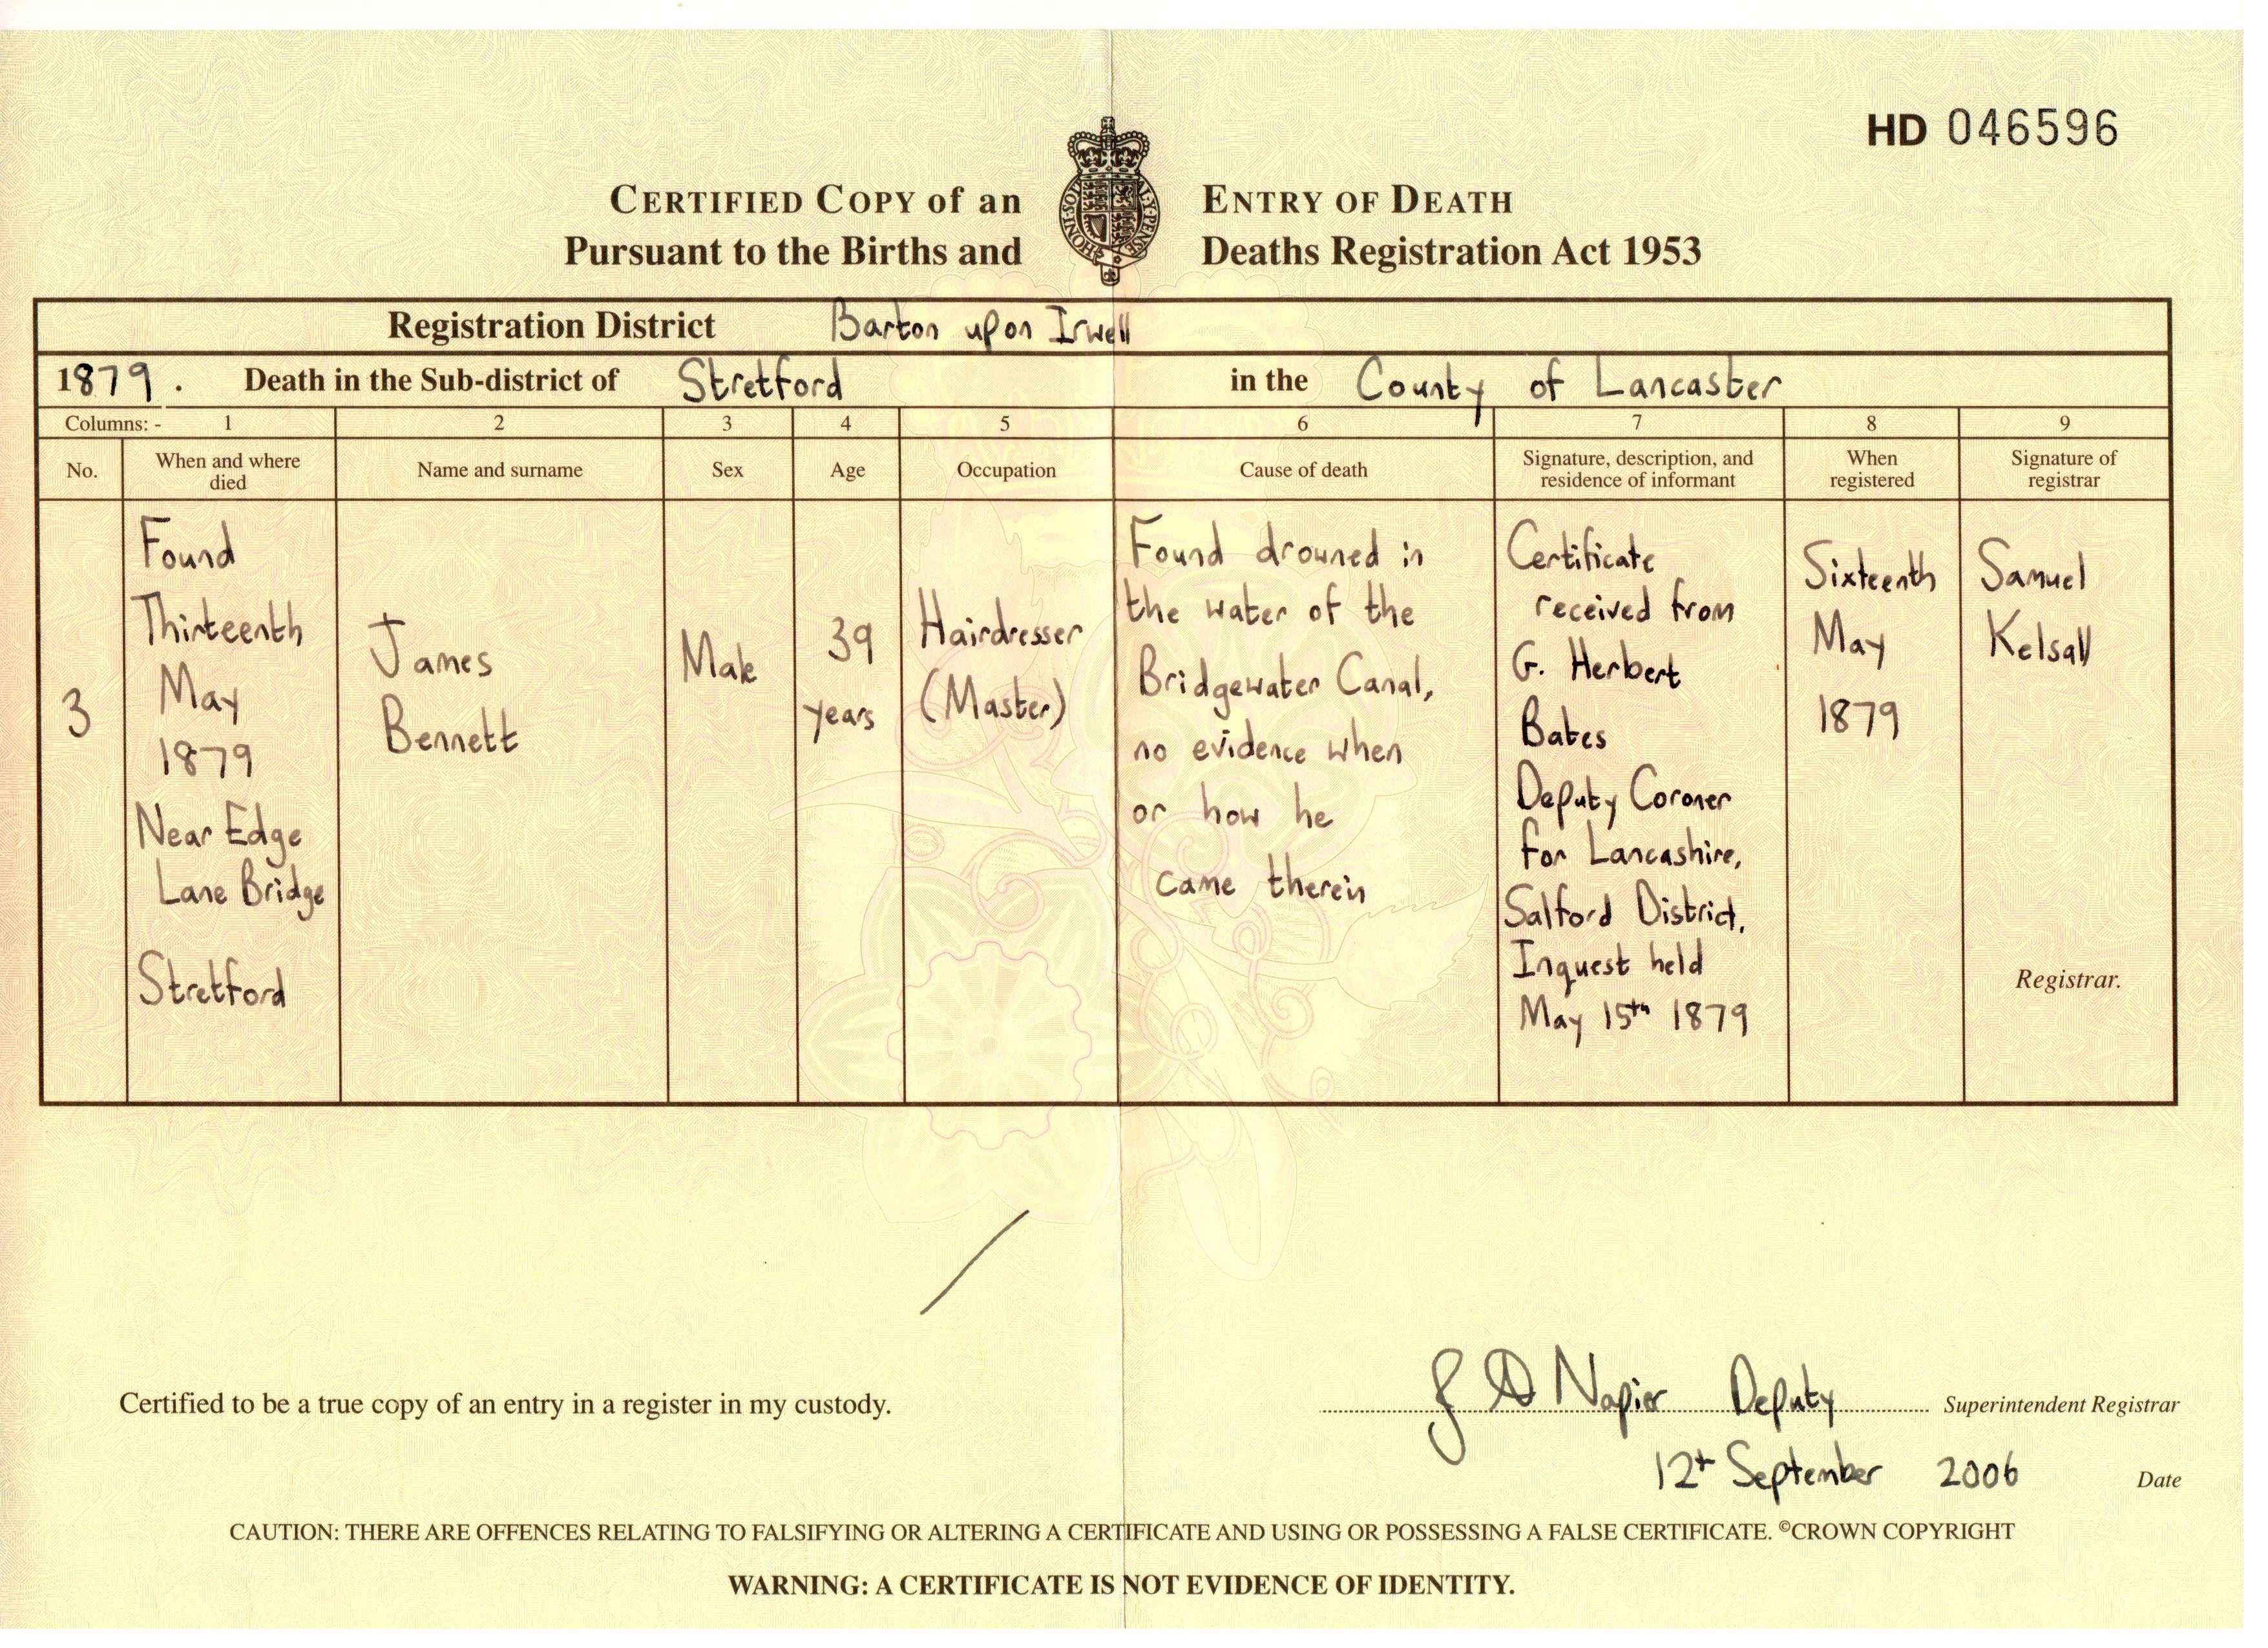 HD 046596
CERTIFIED COPY of an ENTRY OF DEATH
Pursuant to the Births and Deaths Registration Act 1953
HONI·SOI AL·Y·PENSE
Registration District Barton upon Irwell
1879. Death in the Sub-district of Stretford in the County of Lancaster
Columns: - 1 2 3 4 5 6 7 8 9
No.
When and where
died
Name and surname
Sex
Age
Occupation
Cause of death
Signature, description, and
residence of informant
When
registered
Signature of
registrar
3
Found
Thirteenth
May
1879
Near Edge
Lane Bridge
Stretford
James
Bennett
Male
39
years
Hairdresser
(Master)
Found drowned in
the water of the
Bridgewater Canal,
no evidence when
or how he
came therein
Certificate
received from
G. Herbert
Bates
Deputy Coroner
for Lancashire,
Salford District.
Inquest held
May 15th 1879
Sixteenth
May
1879
Samuel
Kelsall
Registrar.
Certified to be a true copy of an entry in a register in my custody.
Napier Deputy Superintendent Registrar
12th September 2006 Date
CAUTION: THERE ARE OFFENCES RELATING TO FALSIFYING OR ALTERING A CERTIFICATE AND USING OR POSSESSING A FALSE CERTIFICATE. ©CROWN COPYRIGHT
WARNING: A CERTIFICATE IS NOT EVIDENCE OF IDENTITY.